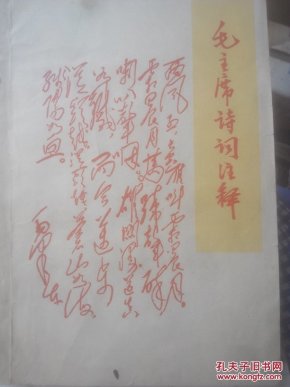 毛主席詩詞注釋
西风烈长空雁叫霜晨月
霜晨月马蹄声碎
喇叭声咽雄关漫道真
如铁而今迈步
从头越从头越苍山如海
残阳如血
毛泽东
孔夫子旧书网